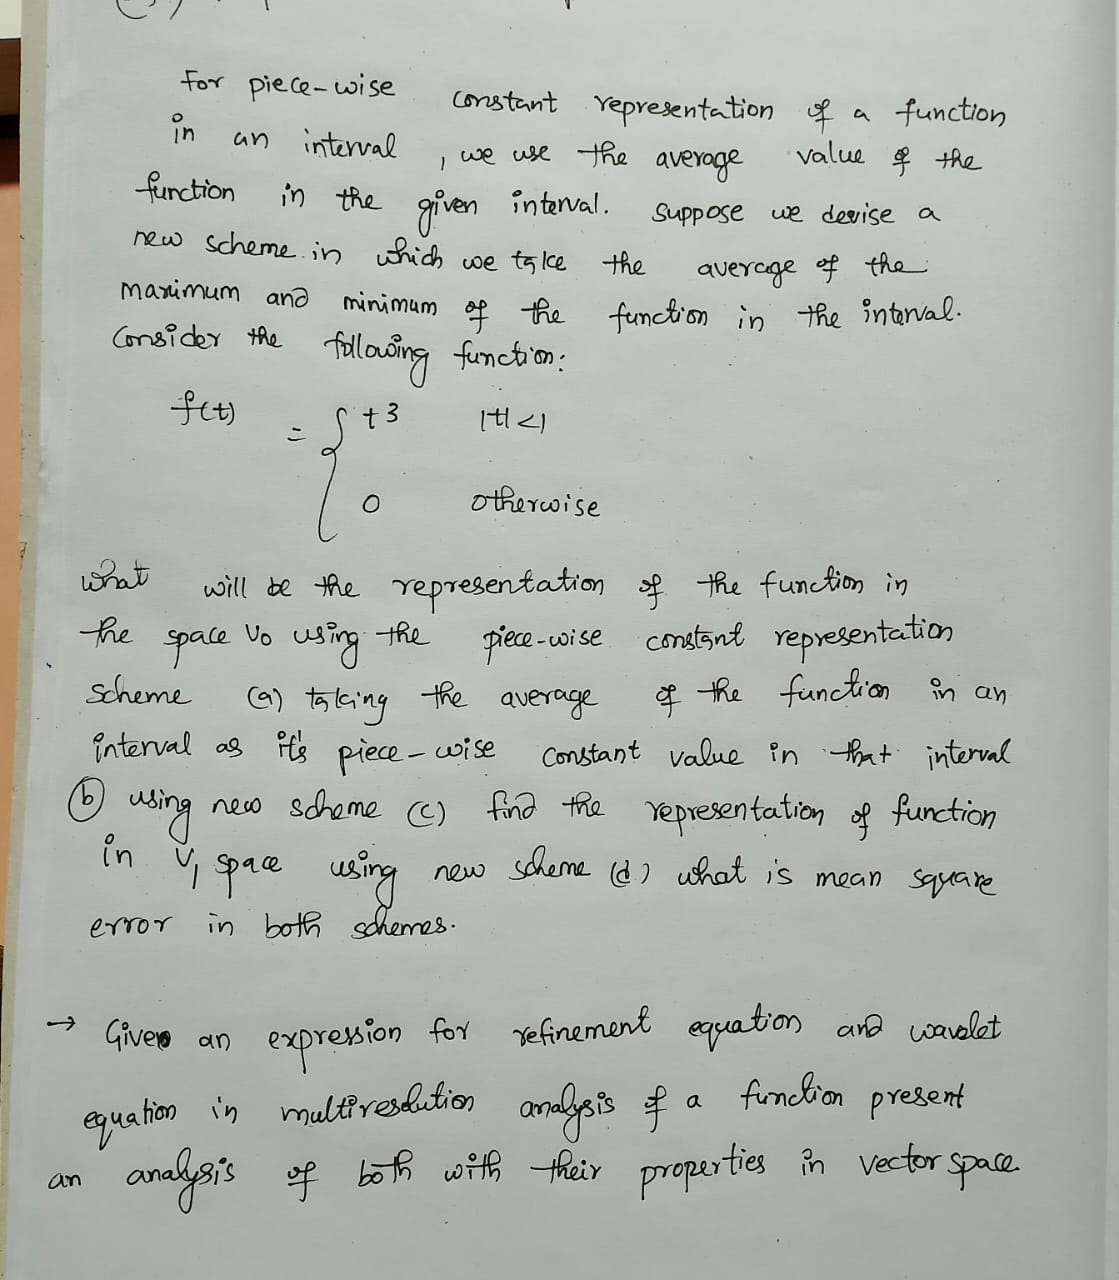 For piece-wise constant representation of a function
in an interval, we use the average value of the
function in the given interval. Suppose we devise a
new scheme in which we take the average of the
maximum and minimum of the function in the interval.
Consider the following function:
f(t) = { t3 |t|<1
0 otherwise
what will be the representation of the function in
the space V0 using the piece-wise constant representation
scheme (a) taking the average of the function in an
interval as it's piece-wise constant value in that interval
(b) using new scheme (c) find the representation of function
in V1 space using new scheme (d) what is mean square
error in both schemes.
→ Given an expression for refinement equation and wavelet
equation in multiresolution analysis of a function present
an analysis of both with their properties in vector space.